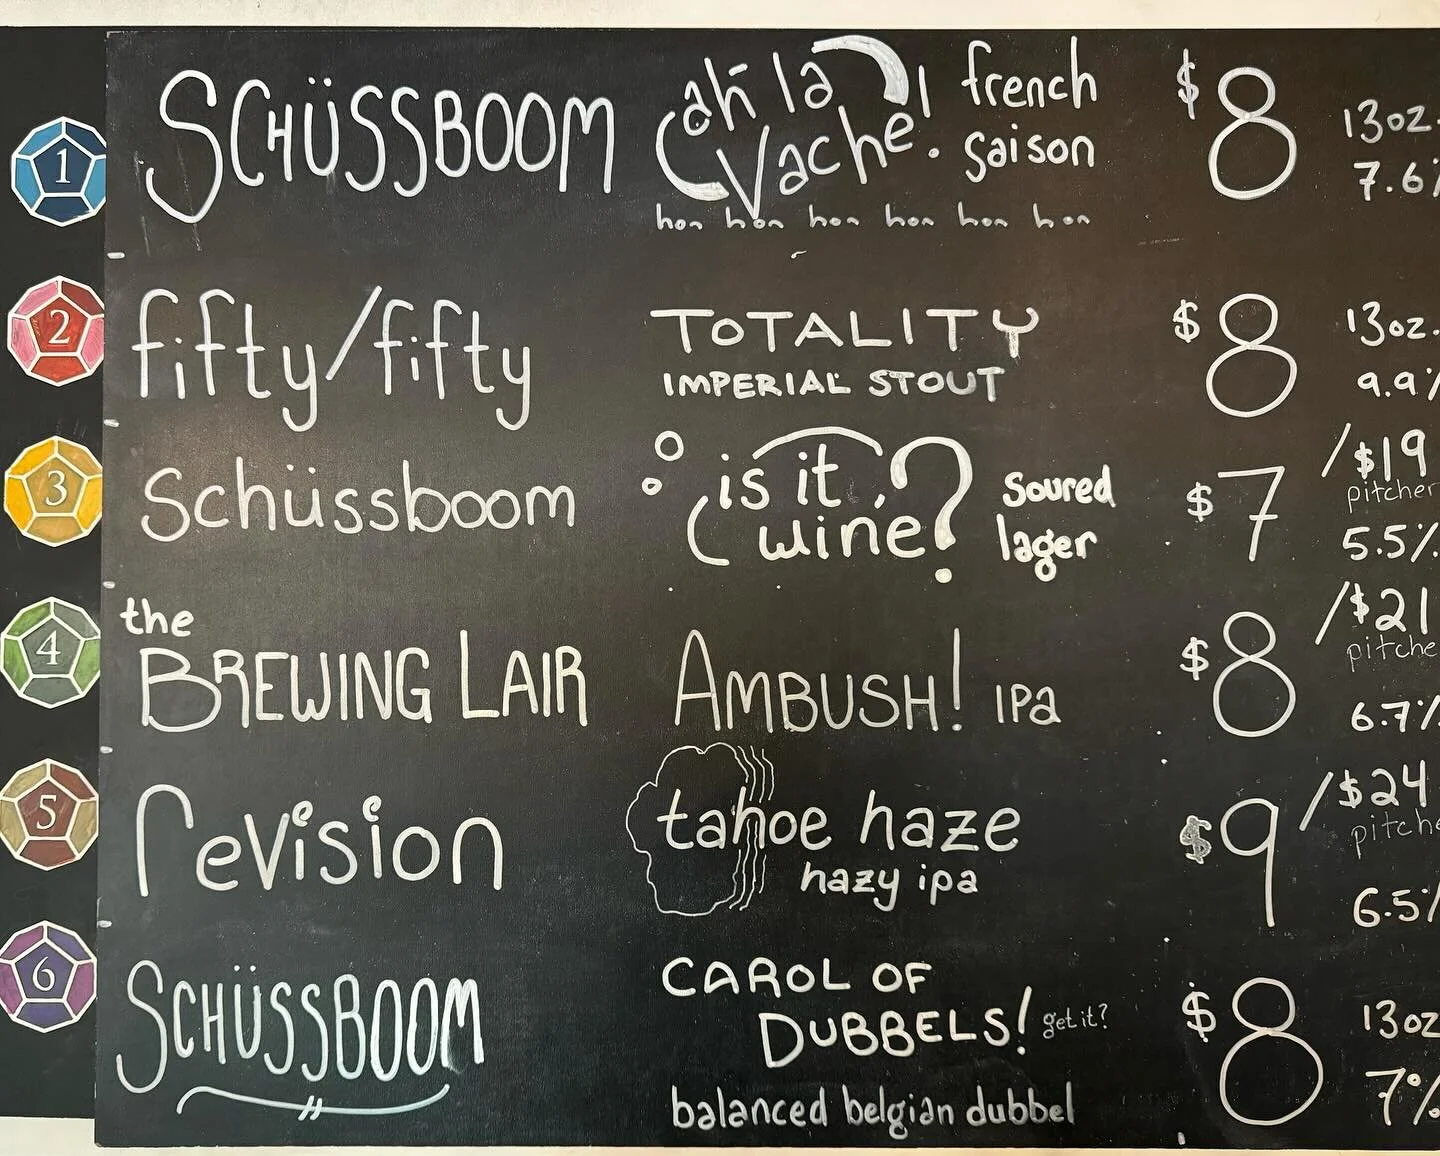 1 SCHÜSSBOOM ah la Vache! french saison $8 13oz. 7.6%
hon hon hon hon hon hon
2 fifty/fifty TOTALITY $8 13oz.
IMPERIAL STOUT 9.9%
3 Schüssboom is it wine? soured lager $7 /$19 pitcher
5.5%
4 the BREWING LAIR AMBUSH! IPA $8 /$21 pitche
6.7%
5 revision tahoe haze $9 /$24 pitche
hazy ipa 6.5%
6 SCHÜSSBOOM CAROL OF DUBBELS! get it? $8 13oz
balanced belgian dubbel 7%